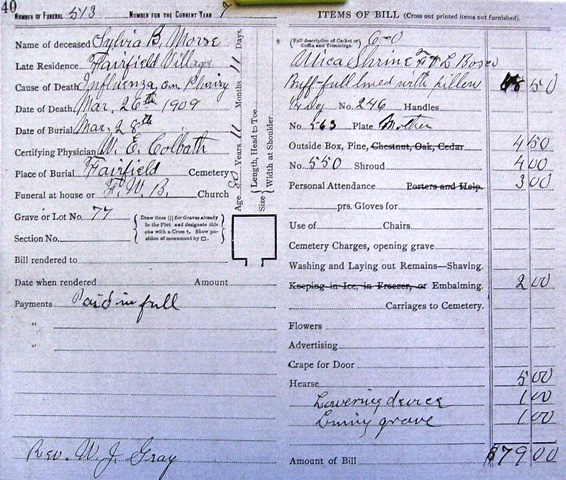 40
NUMBER OF FUNERAL 543 NUMBER FOR THE CURRENT YEAR 9
Name of deceased Sylvia B. Morse
Late Residence Fairfield Village
Cause of Death Influenza and Plurisy
Date of Death Mar. 26th 1909
Date of Burial Mar. 28th
Certifying Physician W. E. Colbath
Place of Burial Fairfield Cemetery
Funeral at house or F. W. B. Church
Grave or Lot No. 77
Section No.
Draw lines (|) for Graves already in the Plot and designate this one with a Cross †. Show position of monument by □.
Bill rendered to
Date when rendered Amount
Payments Paid in full
"
"
Rev. W. J. Gray
Age 80 Years, 11 Months, 11 Days.
Size { Length, Head to Toe.
Width at Shoulder.
ITEMS OF BILL (Cross out printed items not furnished).
(Full description of Casket or Coffin and Trimmings.) 6-0
Utica Shrine
Buff full lined with pillow 58 50
No. 246 Handles
No. 563 Plate Mother
Outside Box, Pine, Chestnut, Oak, Cedar 4 50
No. 550 Shroud 4 00
Personal Attendance Porters and Help. 3 00
prs. Gloves for
Use of Chairs
Cemetery Charges, opening grave
Washing and Laying out Remains—Shaving.
Keeping in Ice, in Freezer, or Embalming. 2 00
Carriages to Cemetery.
Flowers
Advertising
Crape for Door
Hearse 5 00
Lowering device 1 00
Lining grave 1 00
Amount of Bill $79 00